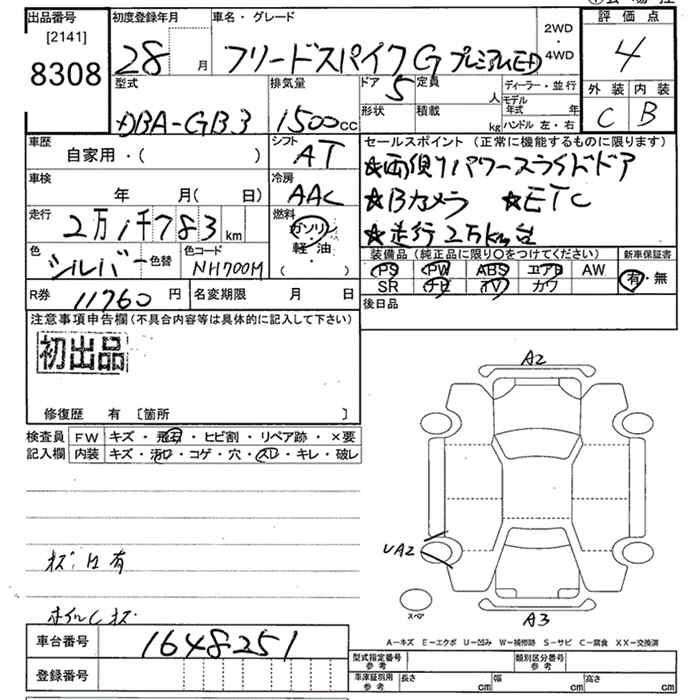 出品番号 初度登録年月 車名・グレード 2WD・4WD 評価点
[2141]
8308 28 月 フリードスパイクG プレミアムED 4
型式 排気量 ドア 5 定員 人 ディーラー・並行 外装 内装
DBA-GB3 1500cc 形状 積載 kg モデル年式 年 ハンドル 左・右 C B
車歴 自家用・( ) シフト AT セールスポイント(正常に機能するものに限ります)
★両側パワースライドドア
車検 年 月(日) 冷房 AAC ★Bカメラ ★ETC
走行 2万1千783km 燃料 ガソリン・軽油・( ) ★走行2万km台
色 シルバー 色替 色コード NH700M 装備品(純正品に限り○をつけてください) 新車保証書
PS PW ABS エアB AW 有・無
SR ナビ TV カワ
R券 11760円 名変期限 月 日 後日品
注意事項申告欄(不具合内容等は具体的に記入して下さい)
初出品
A2
修復歴 有 [箇所 ]
検査員 FW キズ・飛石・ヒビ割・リペア跡・×要
記入欄 内装 キズ・汚れ・コゲ・穴・スレ・キレ・破レ
UA2
有
ホイルCキズ
スペア
A3
A-キズ E-エクボ U-凹み W-補修跡 S-サビ C-腐食 XX-交換済
車台番号 1648251
型式指定番号 参考 類別区分番号 参考
登録番号 車庫証明用 参考 長さ cm 幅 cm 高さ cm